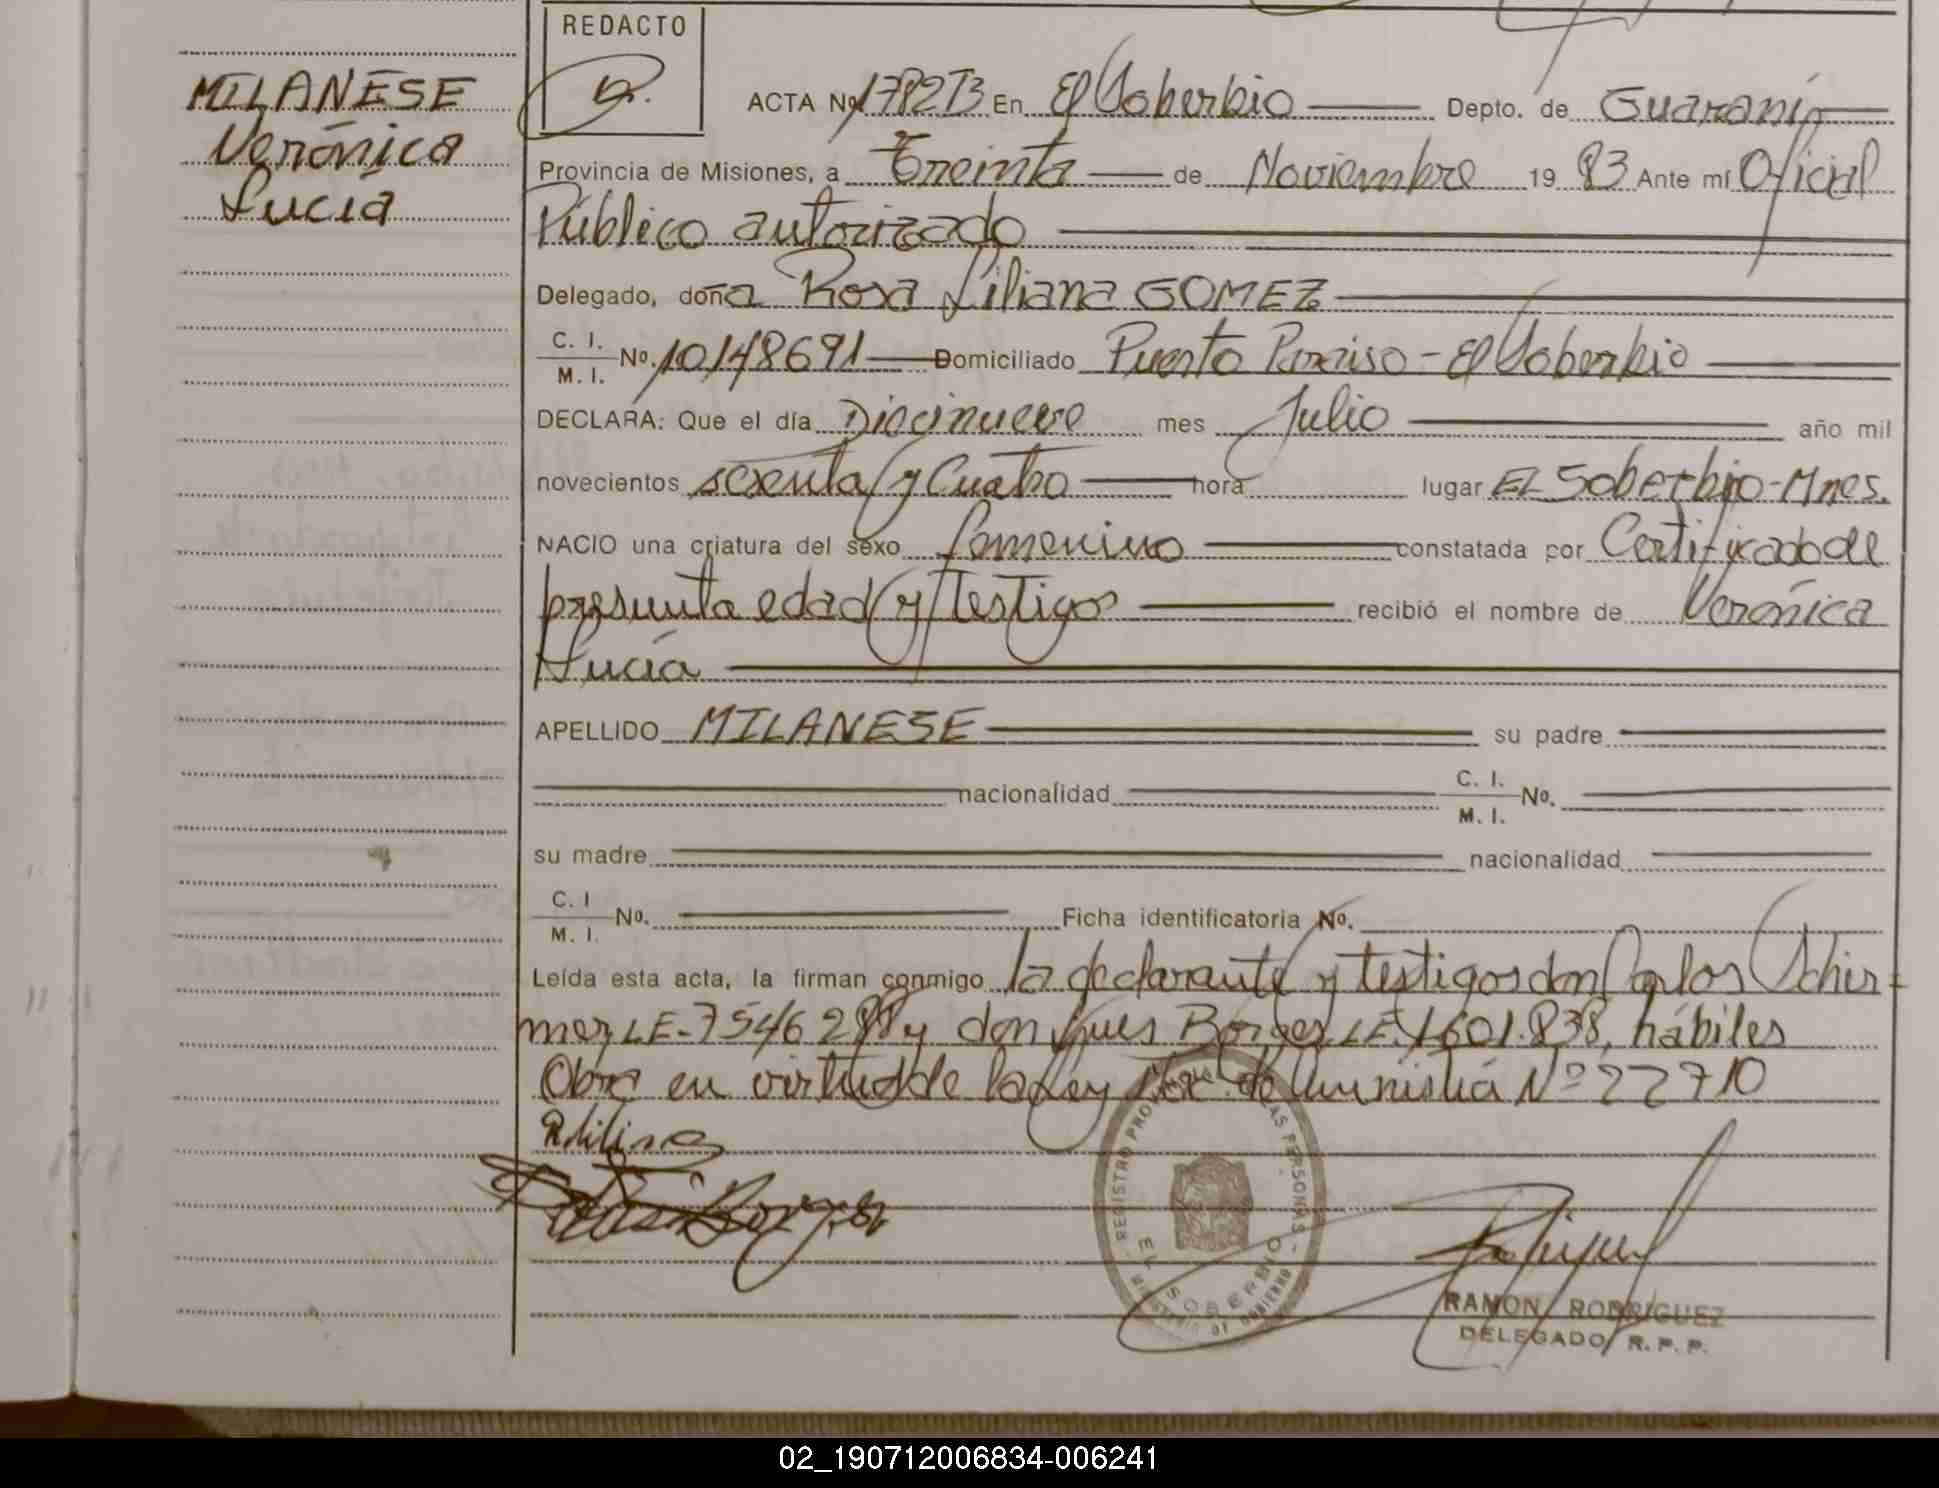 REDACTO
MILANESE
Verónica
Lucía
ACTA Nº 1782 T3 En El Soberbio Depto. de Guaraní
Provincia de Misiones, a Treinta de Noviembre 19 83 Ante mí Oficial
Público autorizado
Delegado, doña Rosa Liliana GOMEZ
C. I. / M. I. Nº. 10148691 Domiciliado Puerto Paraiso - El Soberbio
DECLARA: Que el día Diecinueve mes Julio año mil
novecientos sesenta y Cuatro hora lugar EL Soberbio - Mnes.
NACIO una criatura del sexo femenino constatada por Certificado de
presunta edad y testigos recibió el nombre de Verónica
Lucía
APELLIDO MILANESE su padre
nacionalidad C. I. / M. I. Nº.
su madre nacionalidad
C. I / M. I. Nº. Ficha identificatoria Nº.
Leída esta acta, la firman conmigo la declarante y testigos don Carlos Schir-
mer LE-7546 288 y don Borges LE. 1601.838, hábiles
Obra en virtud de la Ley de Amnistia Nº 22710
REGISTRO PROVINCIAL DE LAS PERSONAS
EL SOBERBIO
MINISTERIO DE GOBIERNO
RAMON RODRIGUEZ
DELEGADO R. P. P.
02_190712006834-006241